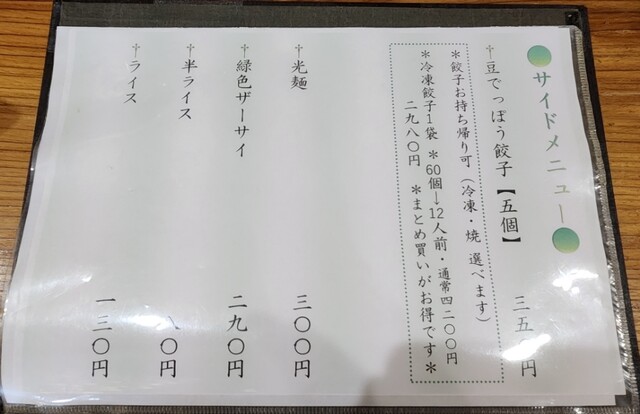 ●サイドメニュー●
†豆でっぽう餃子【五個】 三五〇円
＊餃子お持ち帰り可（冷凍・焼 選べます）
＊冷凍餃子1袋 ＊60個→12人前・通常四二〇〇円
二九八〇円 ＊まとめ買いがお得です＊
†光麺 三〇〇円
†緑色ザーサイ 二九〇円
†半ライス 八〇円
†ライス 一三〇円